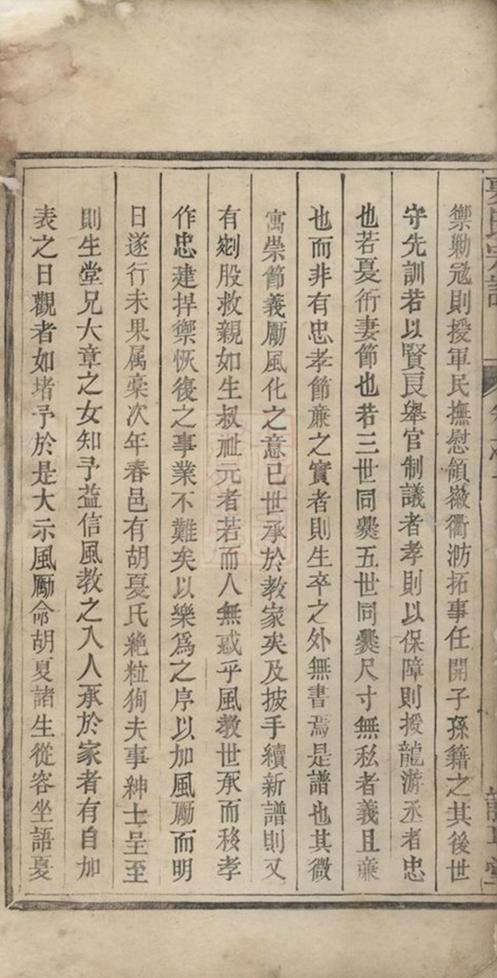 禦勦冦則授軍民撫慰領嶶衢泐拓事任開子孫籍之其後世
守先訓若以賢良舉官制議者孝則以保障則授龍游丞者忠
也若夏術妻節也若三世同爨五世同爨尺寸無私者義且亷
也而非有忠孝節亷之實者則生卒之外無書焉是譜也其微
寓崇節義勵風化之意已世承於教家矣及披手續新譜則又
有剜股救親如生叔祉元者若而人無惑乎風教世承而移孝
作忠建捍禦恢復之事業不難矣以樂爲之序以加風勵而明
日遂行未果属稾次年春邑有胡夏氏絶粒狥夫事紳士呈至
則生堂兄大章之女知予益信風教之入人承於家者有自加
表之日觀者如堵予於是大示風勵命胡夏諸生從容坐語夏